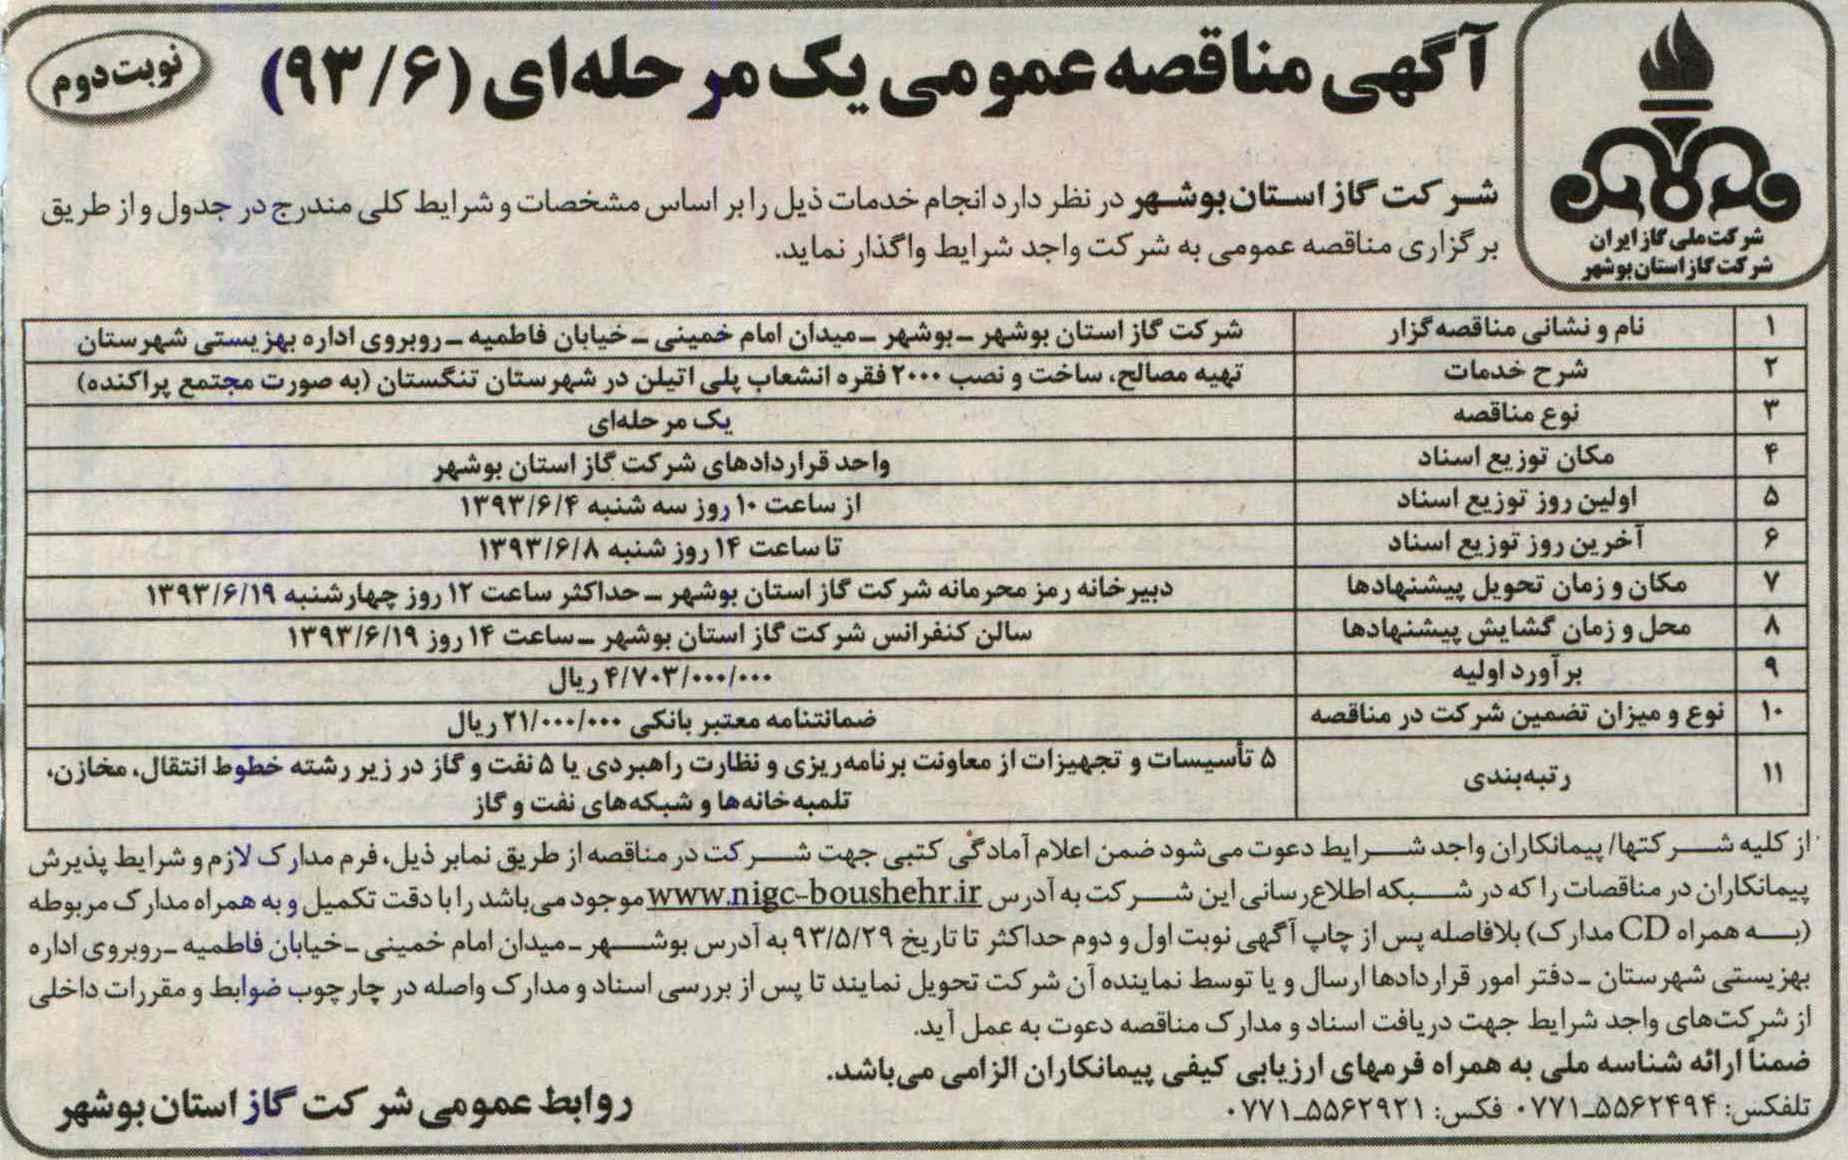 آگهی مناقصه عمومی یک مرحله‌ای (۹۳/۶)
نوبت دوم
شرکت ملی گاز ایران
شرکت گاز استان بوشهر
شرکت گاز استان بوشهر در نظر دارد انجام خدمات ذیل را بر اساس مشخصات و شرایط کلی مندرج در جدول و از طریق
برگزاری مناقصه عمومی به شرکت واجد شرایط واگذار نماید.
۱ نام و نشانی مناقصه‌گزار شرکت گاز استان بوشهر ـ بوشهر ـ میدان امام خمینی ـ خیابان فاطمیه ـ روبروی اداره بهزیستی شهرستان
۲ شرح خدمات تهیه مصالح، ساخت و نصب ۲۰۰۰ فقره انشعاب پلی اتیلن در شهرستان تنگستان (به صورت مجتمع پراکنده)
۳ نوع مناقصه یک مرحله‌ای
۴ مکان توزیع اسناد واحد قراردادهای شرکت گاز استان بوشهر
۵ اولین روز توزیع اسناد از ساعت ۱۰ روز سه شنبه ۱۳۹۳/۶/۴
۶ آخرین روز توزیع اسناد تا ساعت ۱۴ روز شنبه ۱۳۹۳/۶/۸
۷ مکان و زمان تحویل پیشنهادها دبیرخانه رمز محرمانه شرکت گاز استان بوشهر ـ حداکثر ساعت ۱۲ روز چهارشنبه ۱۳۹۳/۶/۱۹
۸ محل و زمان گشایش پیشنهادها سالن کنفرانس شرکت گاز استان بوشهر ـ ساعت ۱۴ روز ۱۳۹۳/۶/۱۹
۹ برآورد اولیه ۴/۷۰۳/۰۰۰/۰۰۰ ریال
۱۰ نوع و میزان تضمین شرکت در مناقصه ضمانتنامه معتبر بانکی ۲۱/۰۰۰/۰۰۰ ریال
۱۱ رتبه‌بندی ۵ تأسیسات و تجهیزات از معاونت برنامه‌ریزی و نظارت راهبردی یا ۵ نفت و گاز در زیر رشته خطوط انتقال، مخازن،
تلمبه‌خانه‌ها و شبکه‌های نفت و گاز
از کلیه شرکتها/ پیمانکاران واجد شرایط دعوت می‌شود ضمن اعلام آمادگی کتبی جهت شرکت در مناقصه از طریق نمابر ذیل، فرم مدارک لازم و شرایط پذیرش
پیمانکاران در مناقصات را که در شبکه اطلاع‌رسانی این شرکت به آدرس www.nigc-boushehr.ir موجود می‌باشد را با دقت تکمیل و به همراه مدارک مربوطه
(به همراه CD مدارک) بلافاصله پس از چاپ آگهی نوبت اول و دوم حداکثر تا تاریخ ۹۳/۵/۲۹ به آدرس بوشهر ـ میدان امام خمینی ـ خیابان فاطمیه ـ روبروی اداره
بهزیستی شهرستان ـ دفتر امور قراردادها ارسال و یا توسط نماینده آن شرکت تحویل نمایند تا پس از بررسی اسناد و مدارک واصله در چارچوب ضوابط و مقررات داخلی
از شرکت‌های واجد شرایط جهت دریافت اسناد و مدارک مناقصه دعوت به عمل آید.
ضمناً ارائه شناسه ملی به همراه فرمهای ارزیابی کیفی پیمانکاران الزامی می‌باشد.
تلفکس: ۵۵۶۲۴۹۴ـ۰۷۷۱ فکس: ۵۵۶۲۹۲۱ـ۰۷۷۱
روابط عمومی شرکت گاز استان بوشهر